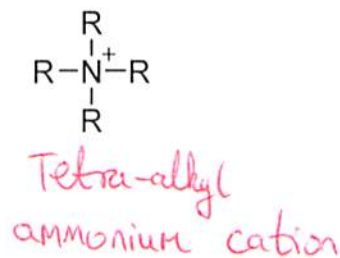 R
R-N+-R
R
Tetra-alkyl
ammonium cation